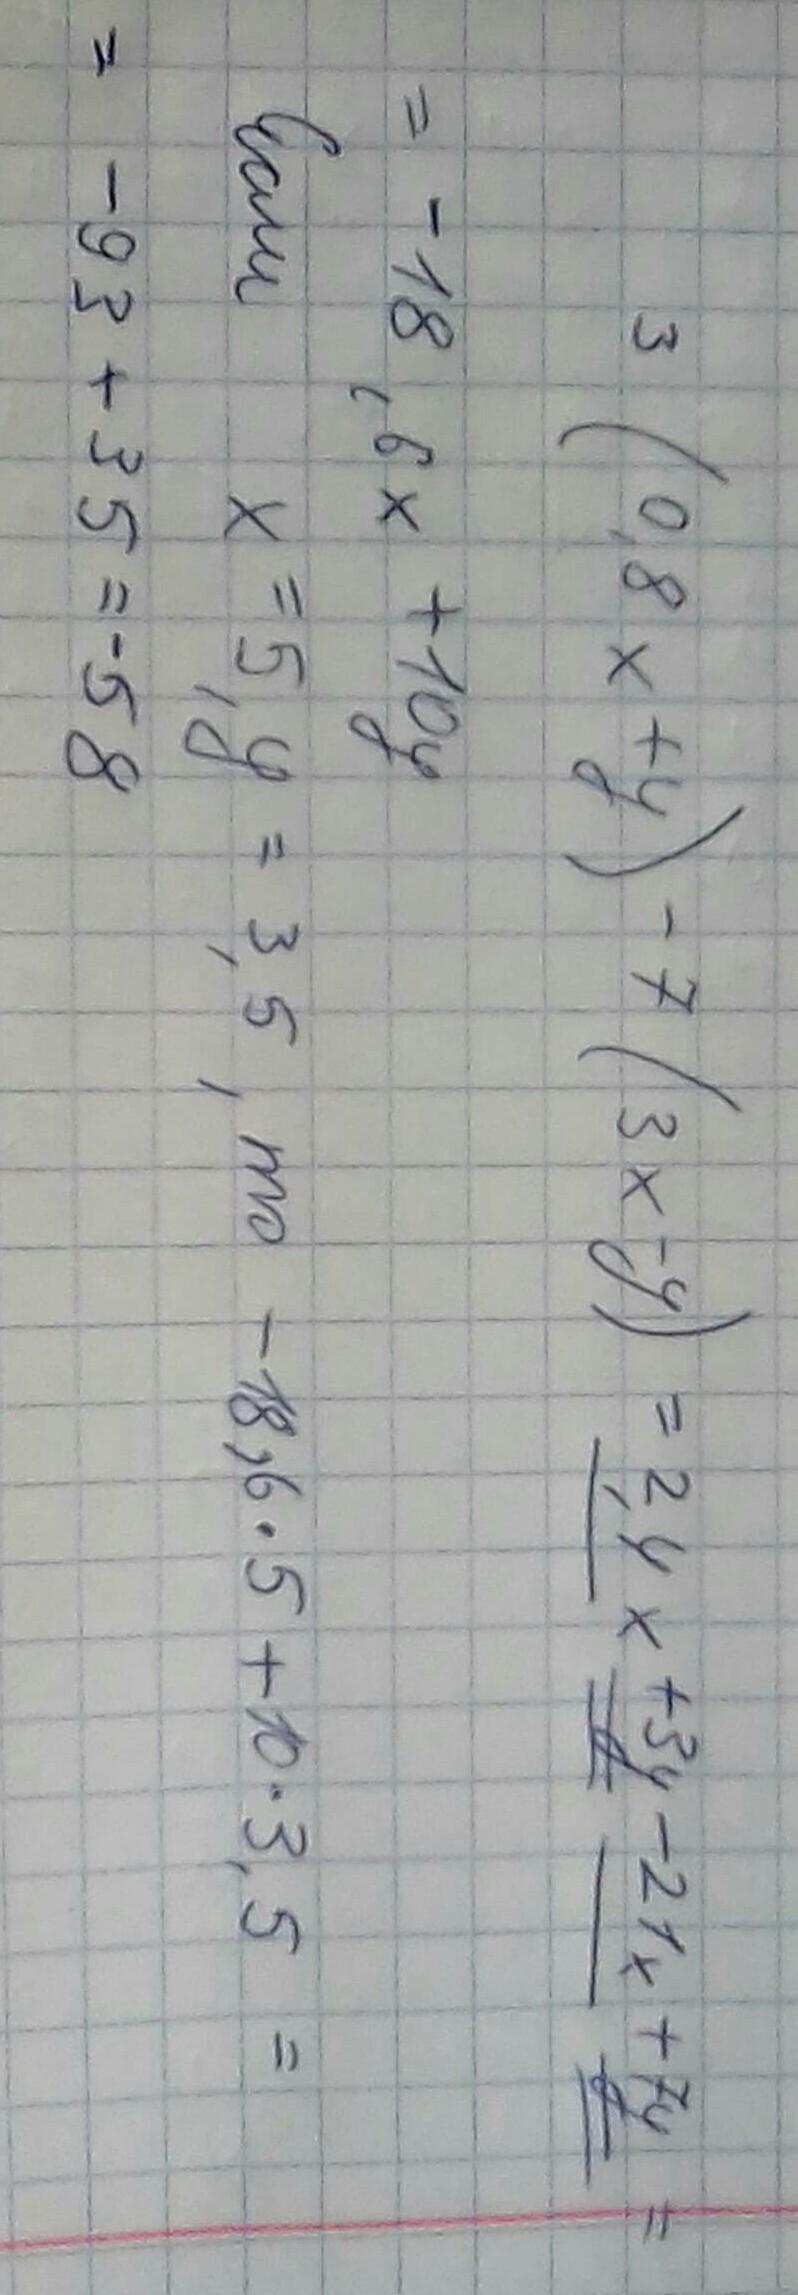 3 (0,8 x + y) - 7 (3 x - y) = 2,4 x + 3y - 21x + 7y =
= - 18,6 x + 10y
Если x = 5, y = 3,5, то - 18,6 · 5 + 10 · 3,5 =
= - 93 + 35 = - 58